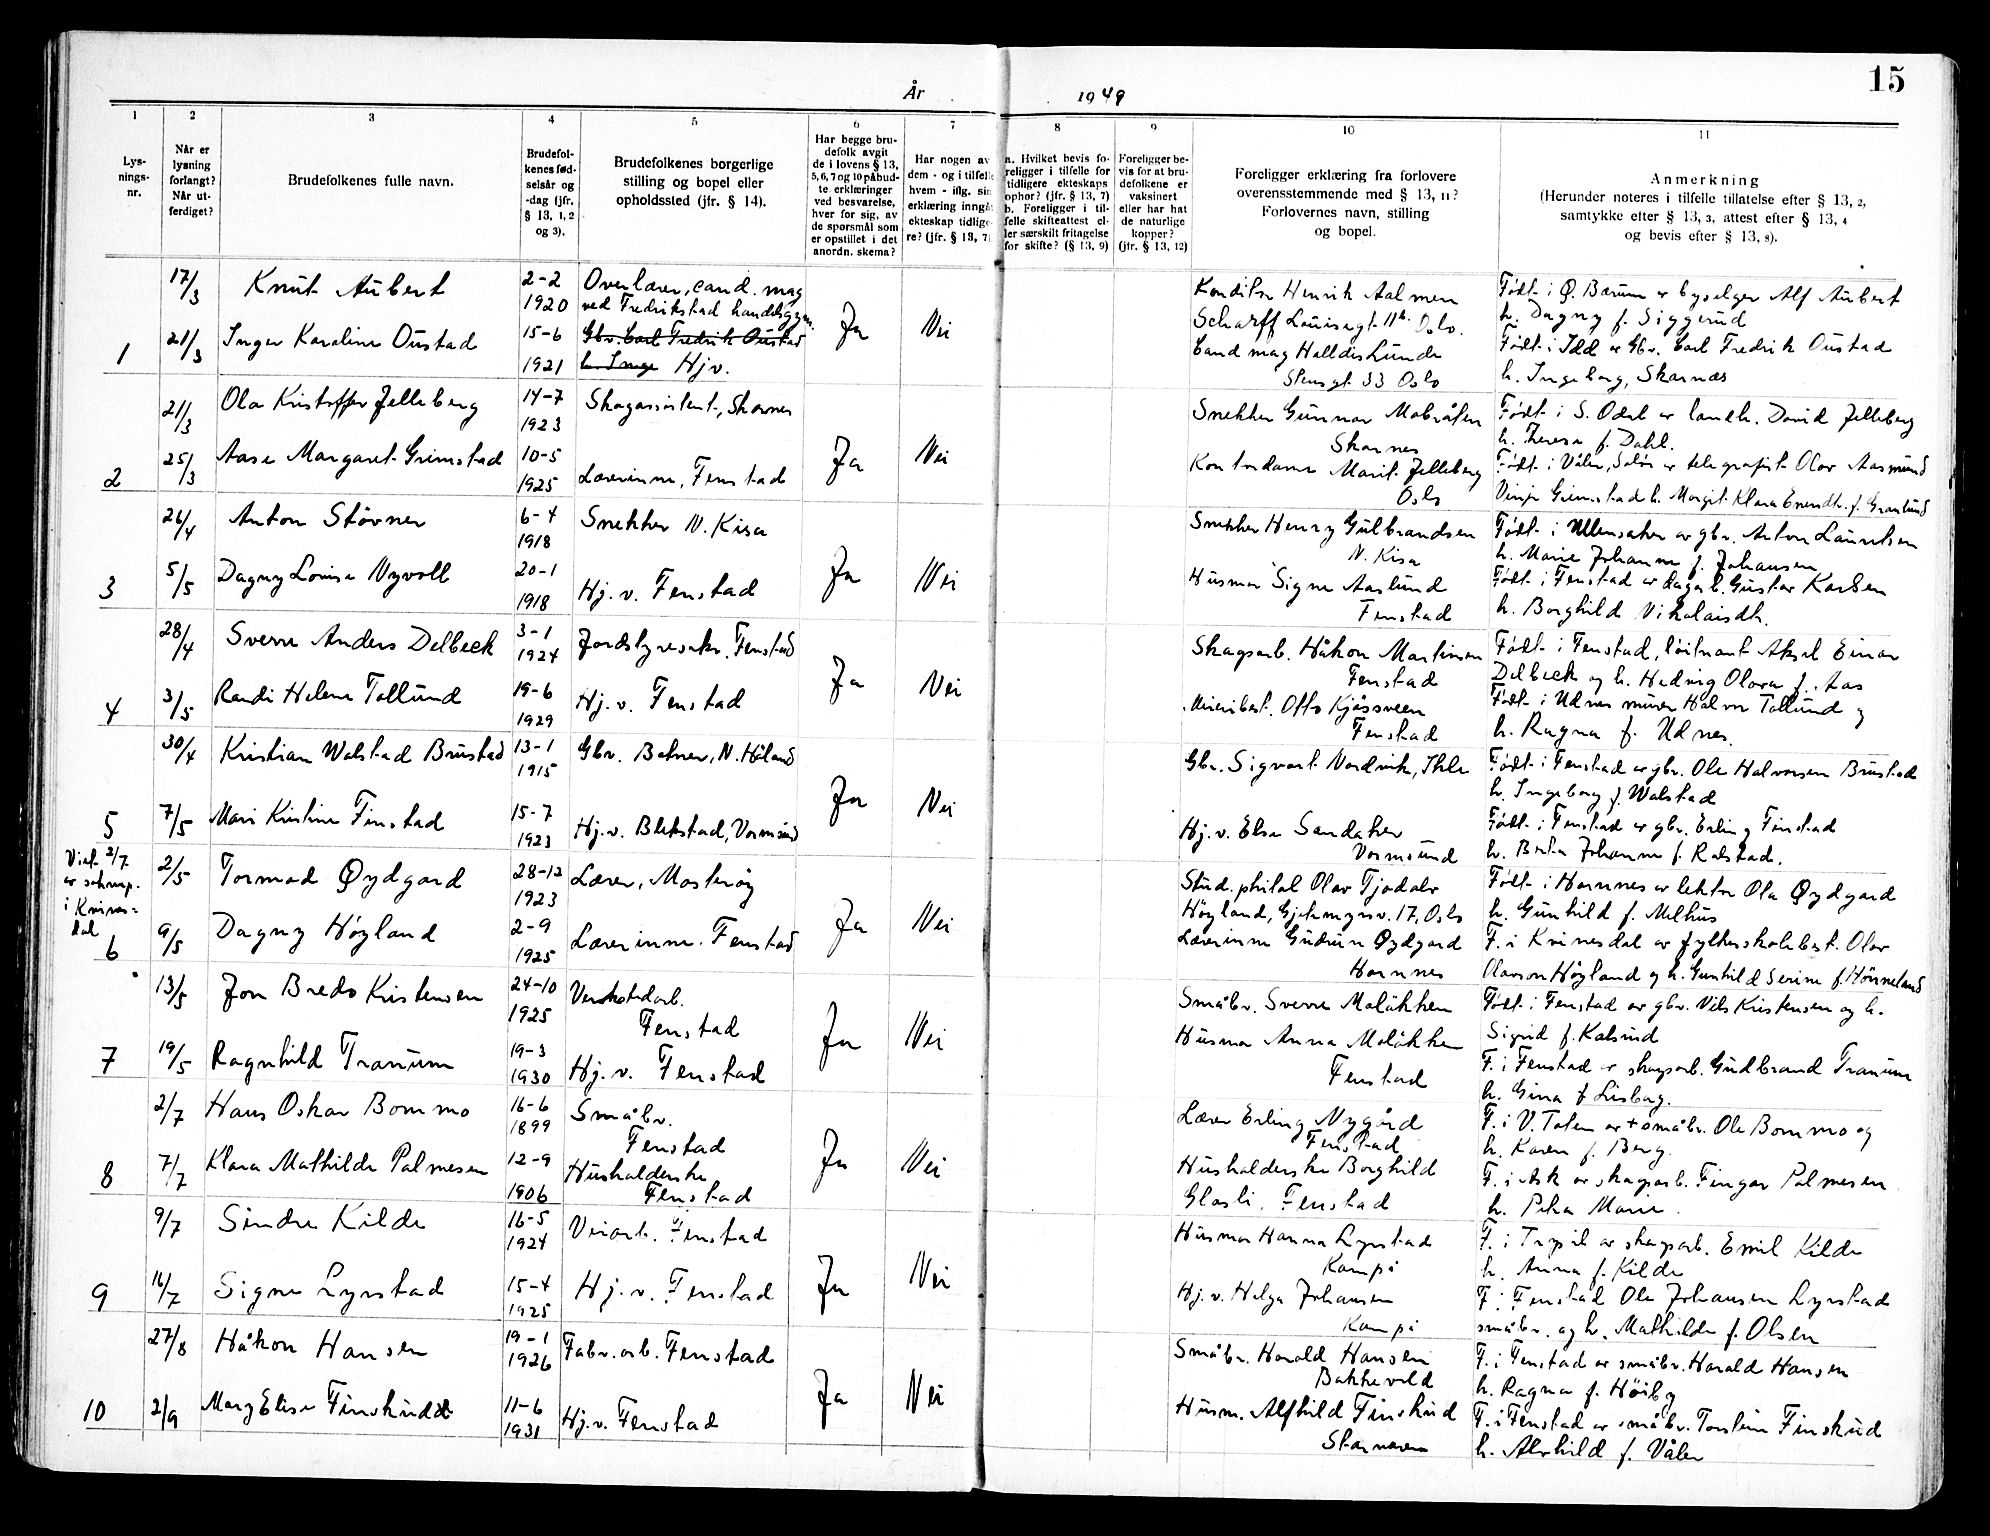 15
År 1949
1
2
3
4
5
6
7
8
9
10
11
Lys-
nings-
nr.
Når er
lysning
forlangt?
Når ut-
ferdiget?
Brudefolkenes fulle navn.
Brudefol-
kenes fød-
selsår og
-dag (jfr.
§ 13, 1, 2
og 3).
Brudefolkenes borgerlige
stilling og bopel eller
opholdssted (jfr. § 14).
Har begge bru-
defolk avgit
de i lovens § 13,
5, 6, 7 og 10 påbud-
te erklæringer
ved besvarelse,
hver for sig, av
de spørsmål som
er opstillet i det
anordn. skema?
Har nogen av
dem - og i tilfelle
hvem - iflg. sin
erklæring inngåt
ekteskap tidlige-
re? (jfr. § 13, 7)
a. Hvilket bevis fo-
religger i tilfelle for
tidligere ekteskaps
ophør? (jfr. § 13, 7)
b. Foreligger i til-
felle skifteattest el-
ler særskilt fritagelse
for skifte? (§ 13, 9)
Foreligger be-
vis for at bru-
defolkene er
vaksinert
eller har hat
de naturlige
kopper?
(jfr. § 13, 12)
Foreligger erklæring fra forlovere
overensstemmende med § 13, 11?
Forlovernes navn, stilling
og bopel.
Anmerkning
(Herunder noteres i tilfelle tillatelse efter § 13, 2,
samtykke efter § 13, 3, attest efter § 13, 4
og bevis efter § 13, 8).
1
17/3
21/3
Knut Aubert
Inger Karoline Oustad
2-2
1920
15-6
1921
Overlærer, cand. mag
ved Fredrikstad handelsgym.
Gbr. Carl Fredrik Oustad
h. Inge Hjv.
Ja
Nei
Konditor Henrik Aalmen
Scharff Louisegt. 11b Oslo.
Cand mag Halldis Lunde
Stensgt. 33 Oslo
Født i Ø. Bærum av byselger Alf Aubert
h. Dagny f. Siggerud
Født i Idd av Gbr. Carl Fredrik Oustad
h. Ingeborg, Skarnes
2
21/3
25/3
Ola Kristoffer Jelleberg
Aase Margaret Grimstad
14-7
1923
10-5
1925
Skogassistent, Skarnes
Lærerinne, Fenstad
Ja
Nei
Snekker Gunnar Mobråten
Skarnes
Kontordame Marit Jelleberg
Oslo
Født i S. Odal av landh. David Jelleberg
h. Theresa f. Dahl.
Født i Våler, Solør av telegrafist Olav Aasmund
Vinje Grimstad h. Margit Klara Evendtr. f. Granlund
3
26/4
5/5
Anton Støvner
Dagny Lovise Nyvoll
6-4
1918
20-1
1918
Snekker N. Kisa
Hj. v. Fenstad
Ja
Nei
Snekker Henry Gulbrandsen
N. Kisa
Husmor Signe Aaslund
Fenstad
Født i Ullensaker av gbr. Anton Lauritsen
h. Marie Johanne f. Johansen
Født i Fenstad av dagarb. Gustav Karlsen
h. Borghild Nikolaisdtr.
4
28/4
3/5
Sverre Anders Delbeck
Randi Helene Tollund
3-1
1924
19-6
1929
Jordstyresekr. Fenstad
Hj. v. Fenstad
Ja
Nei
Skogsarb. Håkon Martinsen
Fenstad
Meieribest. Otto Kjøssveen
Fenstad
Født i Fenstad, løitnant Aksel Einar
Delbeck og h. Hedvig Olava f. Aas
Født i Udnes murer Halvor Tollund og
h. Ragna f. Udnes.
5
30/4
7/5
Kristian Walstad Brustad
Mari Kristine Finstad
13-1
1915
15-7
1923
Gbr. Botner, N. Høland
Hj. v. Blekstad, Vormsund
Ja
Nei
Gbr. Sigvart Nordvik, Ihle
Hj. v. Else Sandaker
Vormsund
Født i Fenstad av gbr. Ole Halvorsen Brustad
h. Ingeborg f. Walstad
Født i Fenstad av gbr. Erling Finstad
h. Berta Johanne f. Rolstad.
Viet 2/7
av soknep.
i Kvines=
dal
6
2/5
9/5
Tormod Øydgard
Dagny Høyland
28-12
1923
2-9
1925
Lærer, Mosterøy
Lærerinne. Fenstad
Ja
Nei
Stud. philol Olav Tjodalv
Høyland, Gjetemyrsv. 17, Oslo
Lærerinne Gudrun Øydgard
Hornnes
Født i Hornnes av lektor Ola Øydgard
h. Gunhild f. Melhus
F. i Kvinesdal av fylkesskolebest. Olav
Olavson Høyland og h. Gunhild Serine f. Hønneland
7
13/5
19/5
Jon Bredo Kristensen
Ragnhild Tranum
24-10
1925
19-3
1930
Verkstedarb.
Fenstad
Hj. v. Fenstad
Ja
Nei
Småbr. Sverre Moløkken
Husmor Anna Moløkken
Fenstad
Født i Fenstad av gbr. Nils Kristensen og h.
Sigrid f. Kalsrud
F. i Fenstad av skogsarb. Gudbrand Tranum
h. Gina f. Lisborg.
8
2/7
7/7
Hans Oskar Bommo
Klara Mathilde Palmesen
16-6
1899
12-9
1906
Småbr.
Fenstad
Husholderske
Fenstad
Ja
Nei
Lærer Erling Nygård
Fenstad
Husholderske Borghild
Glosli, Fenstad
F. i V. Toten av + småbr. Ole Bommo og
h. Karen f. Berg.
F. i Ask av skogsarb. Fingar Palmesen
h. Petra Marie.
9
9/7
16/7
Sindre Kilde
Signe Lyrstad
16-5
1924
15-4
1925
Veiarb. Fenstad
Hj. v. Fenstad
Ja
Nei
Husmor Hanna Lyrstad
Kampå
Hj. v. Helga Johansen
Kampå
F. i Trysil av skogsarb. Emil Kilde
h. Anna f. Kilde
F. i Fenstad Ole Johansen Lyrstad
småbr. og h. Mathilde f. Olsen
10
27/8
2/9
Håkon Hansen
Mary Elise Finskudd
19-1
1926
11-6
1931
Fabr. arb. Fenstad
Hj. v. Fenstad
Ja
Nei
Småbr. Harald Hansen
Bakkevold
Husm. Alfhild Finskud
F. i Fenstad av småbr. Harald Hansen
h. Ragna f. Høiby
F. i Fenstad av småbr. Torstein Finskud
h. Alvhild f. Våler